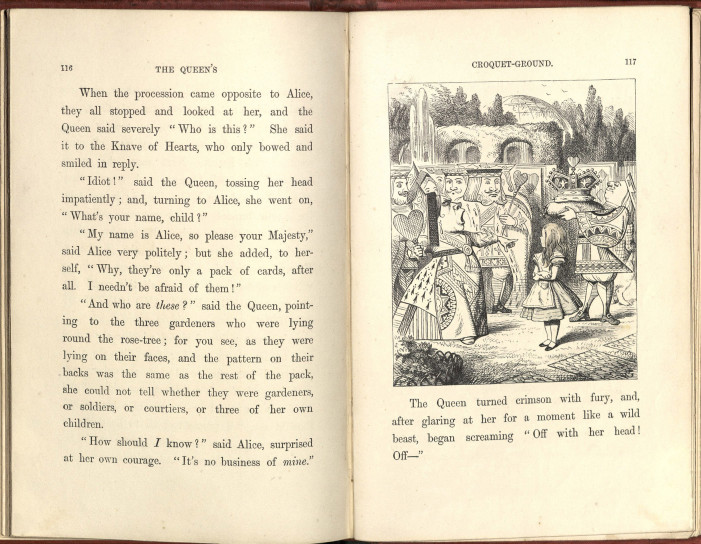 116
THE QUEEN'S
When the procession came opposite to Alice,
they all stopped and looked at her, and the
Queen said severely “Who is this?” She said
it to the Knave of Hearts, who only bowed and
smiled in reply.
“Idiot!” said the Queen, tossing her head
impatiently; and, turning to Alice, she went on,
“What's your name, child?”
“My name is Alice, so please your Majesty,”
said Alice very politely; but she added, to her-
self, “Why, they're only a pack of cards, after
all. I needn't be afraid of them!”
“And who are these?” said the Queen, point-
ing to the three gardeners who were lying
round the rose-tree; for you see, as they were
lying on their faces, and the pattern on their
backs was the same as the rest of the pack,
she could not tell whether they were gardeners,
or soldiers, or courtiers, or three of her own
children.
“How should I know?” said Alice, surprised
at her own courage. “It's no business of mine.”
CROQUET-GROUND.
117
The Queen turned crimson with fury, and,
after glaring at her for a moment like a wild
beast, began screaming “Off with her head!
Off—”